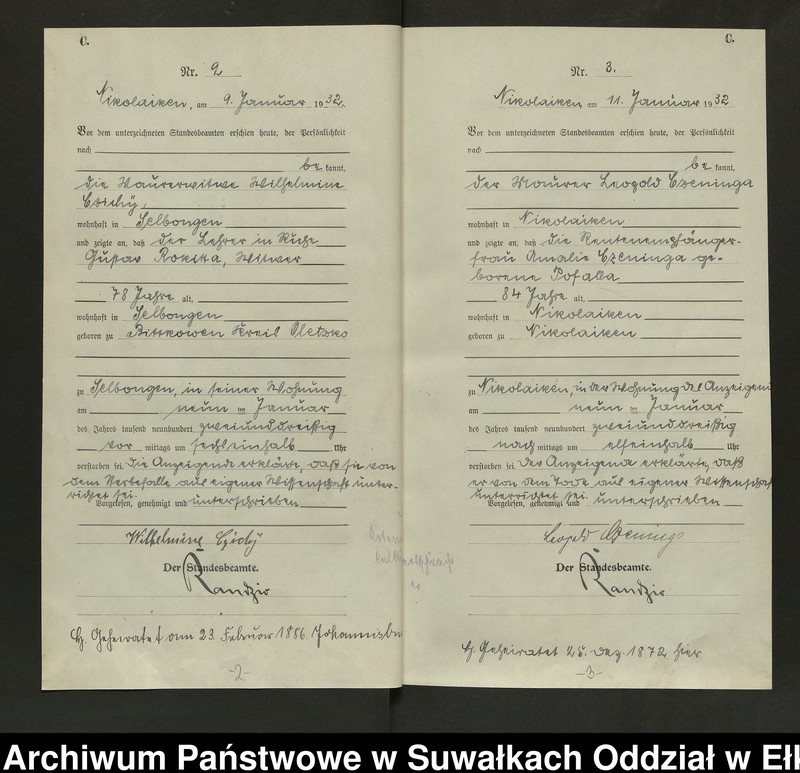 C.
Nr. 2
Nikolaiken, am 9. Januar 1932.
Vor dem unterzeichneten Standesbeamten erschien heute, der Persönlichkeit
nach
be kannt,
die Maurerwitwe Wilhelmine
Czichy,
wohnhaft in Selbongen
und zeigte an, daß der Lehrer in Ruhe
Gustav Rokita, Witwer
78 Jahre alt,
wohnhaft in Selbongen
geboren zu Bittkowen Kreis Oletzko
zu Selbongen, in seiner Wohnung
am neun ten Januar
des Jahres tausend neunhundert zweiunddreißig
vor mittags um sechseinhalb Uhr
verstorben sei. Die Anzeigende erklärte, daß sie von
dem Sterbefalle aus eigener Wissenschaft unter-
richtet sei.
Vorgelesen, genehmigt und unterschrieben
Wilhelmine Czichy
Der Standesbeamte.
Randzio
H. Geheiratet am 23. Februar 1886 Johannisbu
-2-
C.
Nr. 3.
Nikolaiken, am 11. Januar 1932
Vor dem unterzeichneten Standesbeamten erschien heute, der Persönlichkeit
nach
be kannt,
der Maurer Leopold Czeninga
wohnhaft in Nikolaiken
und zeigte an, daß die Rentenempfänger-
frau Amalie Czeninga ge-
borene Pofalla
84 Jahre alt,
wohnhaft in Nikolaiken
geboren zu Nikolaiken
zu Nikolaiken, in der Wohnung des Anzeigend
am neun ten Januar
des Jahres tausend neunhundert zweiunddreißig
nach mittags um elfeinhalb Uhr
verstorben sei. Der Anzeigende erklärte, daß
er von dem Tode aus eigener Wissenschaf
unterrichtet sei.
Vorgelesen, genehmigt und unterschrieben
Leopold Czeninga
Der Standesbeamte.
Randzio
H. Geheiratet 25. Dez. 1872 hier
-3-
Archiwum Państwowe w Suwałkach Oddział w Ełk